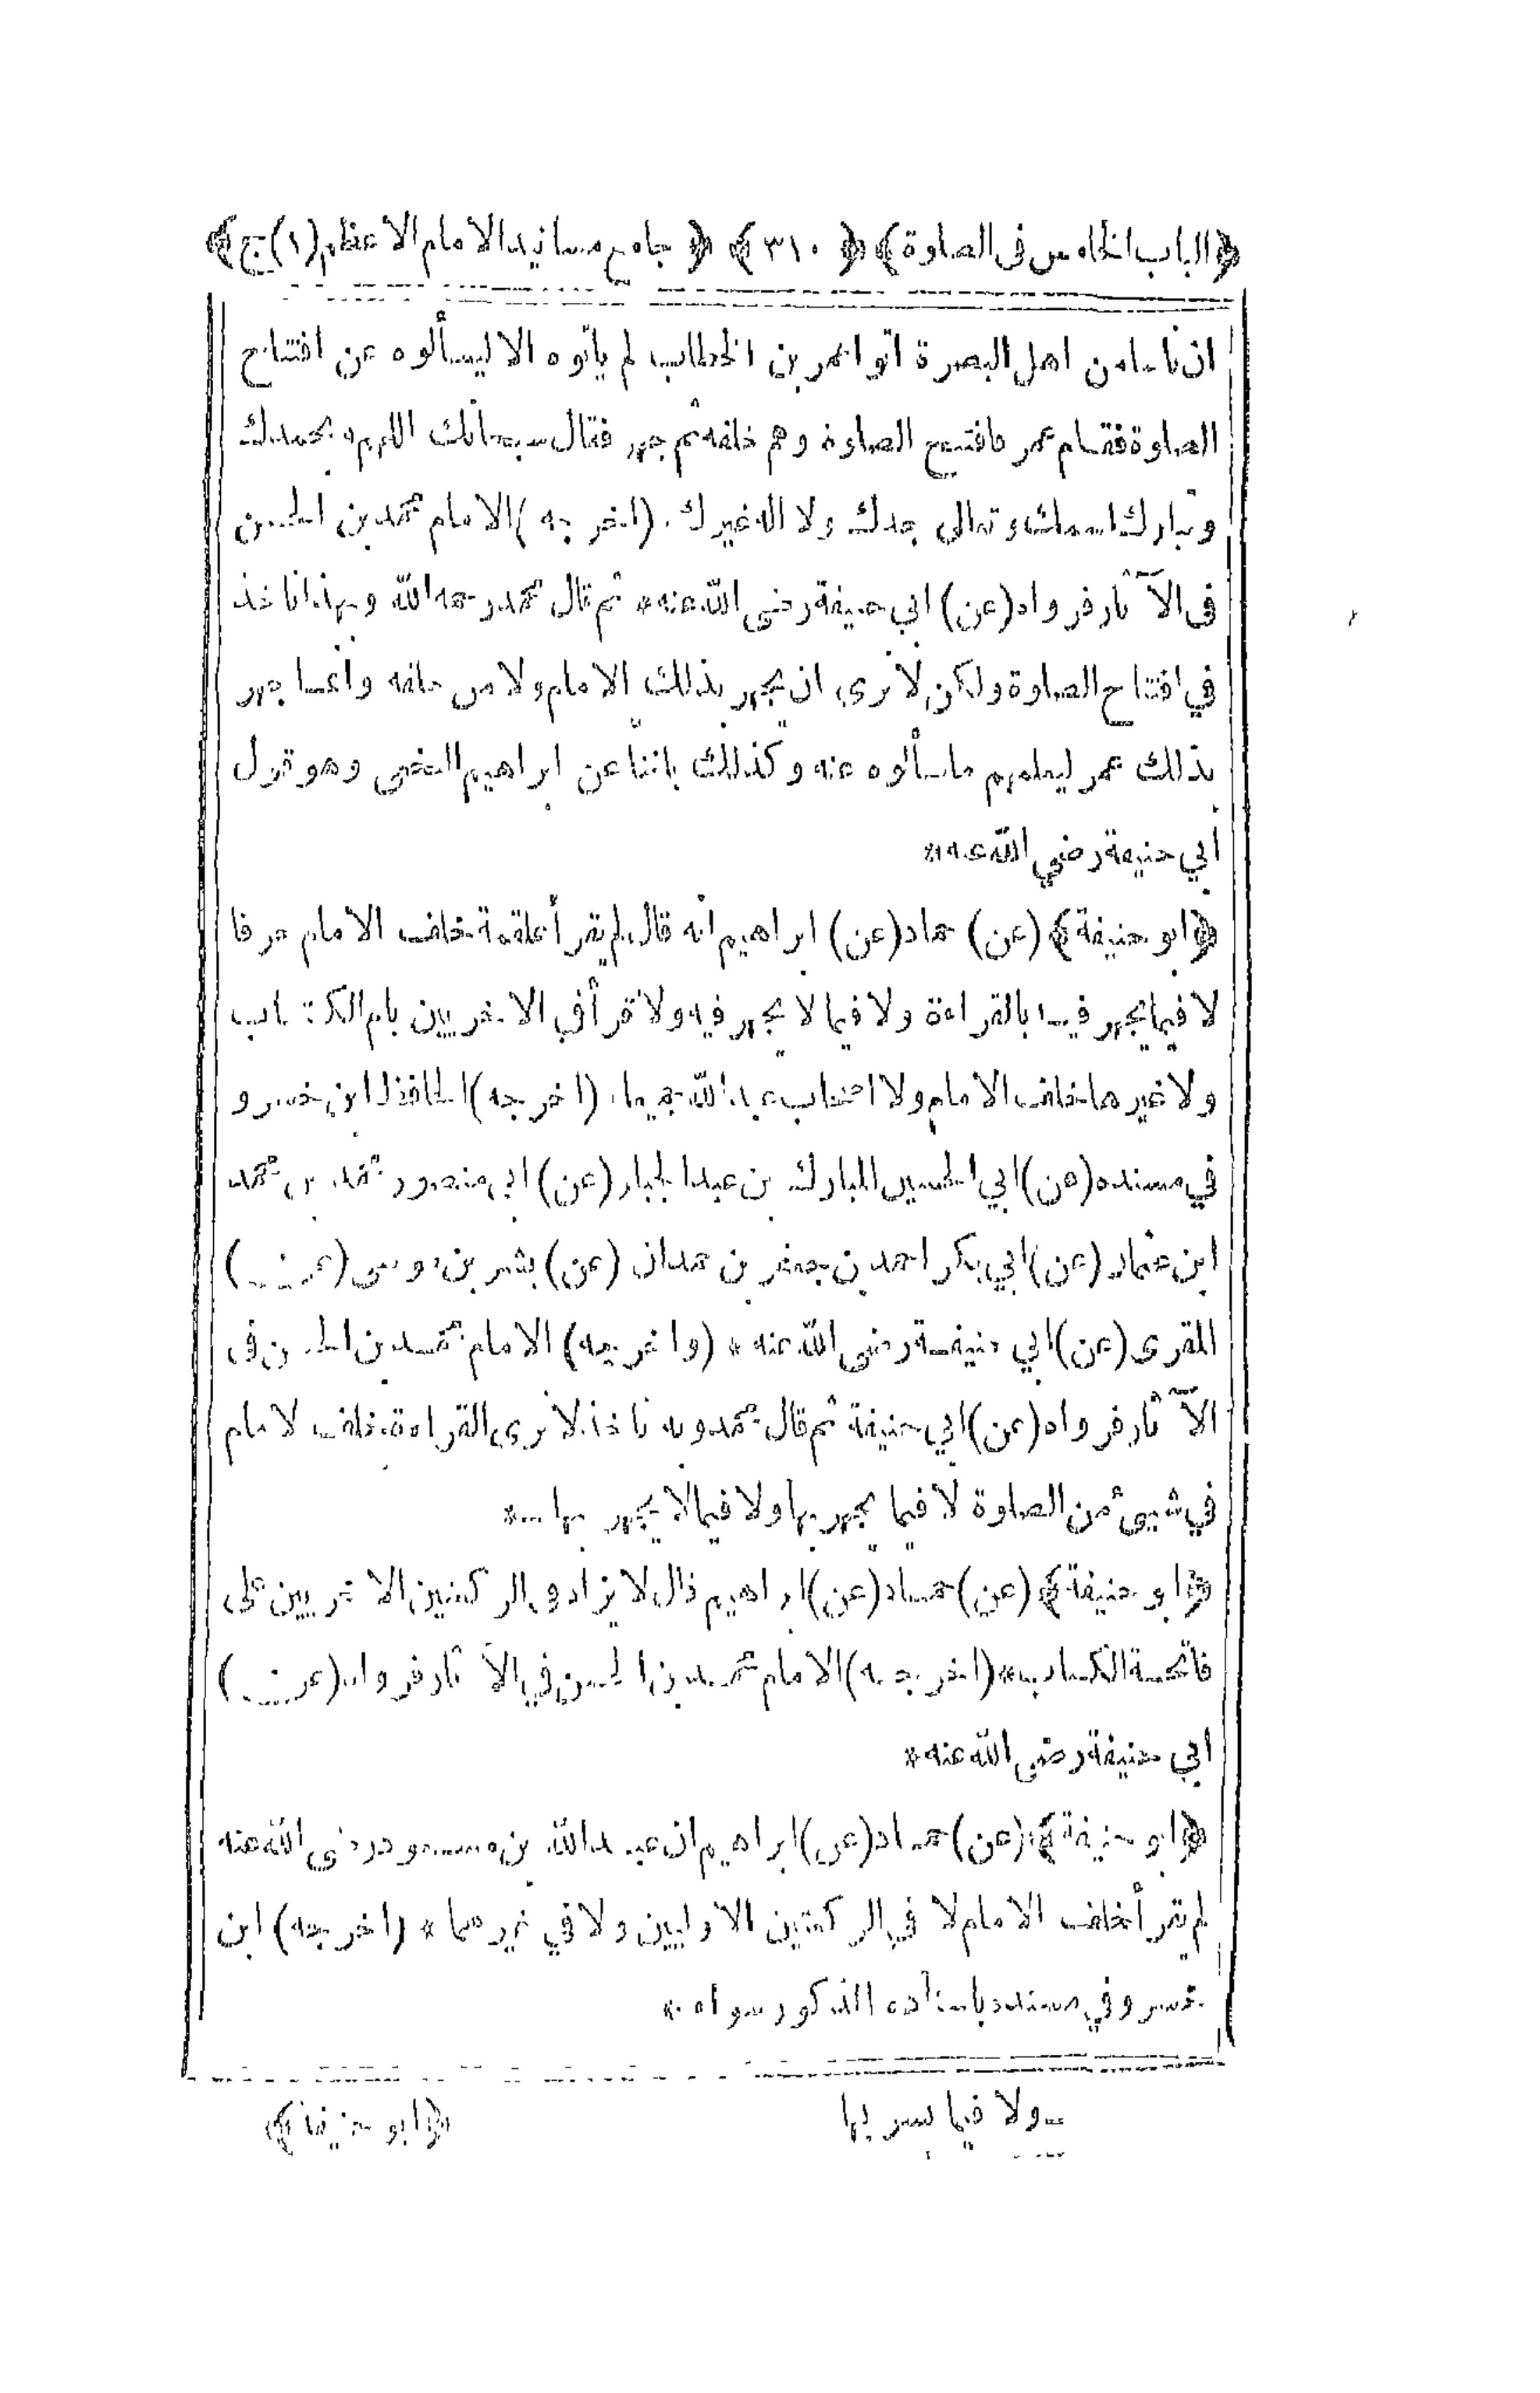 ﴿الباب الخامس فى الصلوة﴾ ﴿٣١٠﴾ ﴿جامع مسانيد الامام الاعظم (١) ج﴾
ان ناسا من اهل البصرة اتوا عمر بن الخطاب لم يأتوه الا ليسألوه عن افتتاح
الصلوة فقام عمر فافتتح الصلوة وهم خلفه ثم جهر فقال سبحانك اللهم وبحمدك
وتبارك اسمك وتعالى جدك ولا اله غيرك . (اخرجه) الامام محمد بن الحسن
فى الآثار فرواه (عن) ابي حنيفة رضى الله عنه * ثم قال محمد رحمه الله وبهذا ناخذ
في افتتاح الصلوة ولكن لا نرى ان يجهر بذلك الامام ولا من خلفه وانما جهر
بذلك عمر ليعلمهم ما سألوه عنه وكذلك بلغنا عن ابراهيم النخعى وهو قول
ابي حنيفة رضي الله عنه *
﴿ابو حنيفة﴾ (عن) حماد (عن) ابراهيم انه قال لم يقرأ علقمة خلف الامام حرفا
لا فيما يجهر فيه بالقراءة ولا فيما لا يجهر فيه ولا قرأ في الاخريين بام الكتاب
ولا غيرها خلف الامام ولا اصحاب عبد الله جميعا . (اخرجه) الحافظ ابن خسرو
في مسنده (عن) ابي الحسين المبارك بن عبد الجبار (عن) ابى منصور محمد بن محمد
ابن عثمان (عن) ابي بكر احمد بن جعفر بن حمدان (عن) بشر بن موسى (عن)
المقرى (عن) ابي حنيفة رضى الله عنه * (واخرجه) الامام محمد بن الحسن فى
الآثار فرواه (عن) ابي حنيفة ثم قال محمد وبه ناخذ لا نرى القراءة خلف لامام
في شيئ من الصلوة لا فيما يجهر بها ولا فيما لا يجهر بها ــ *
﴿ابو حنيفة﴾ (عن) حماد (عن) ابراهيم قال لا يزاد في الركعتين الاخريين على
فاتحة الكتاب * (اخرجه) الامام محمد بن الحسن في الآثار فرواه (عن)
ابي حنيفة رضى الله عنه *
﴿ابو حنيفة﴾ (عن) حماد (عن) ابراهيم ان عبد الله بن مسعود رضى الله عنه
لم يقرأ خلف الامام لا في الركعتين الاوليين ولا في غيرهما * (اخرجه) ابن
خسرو في مسنده باسناده المذكور سواه *
ــ ولا فيما يسر بها ﴿ابو حنيفة﴾